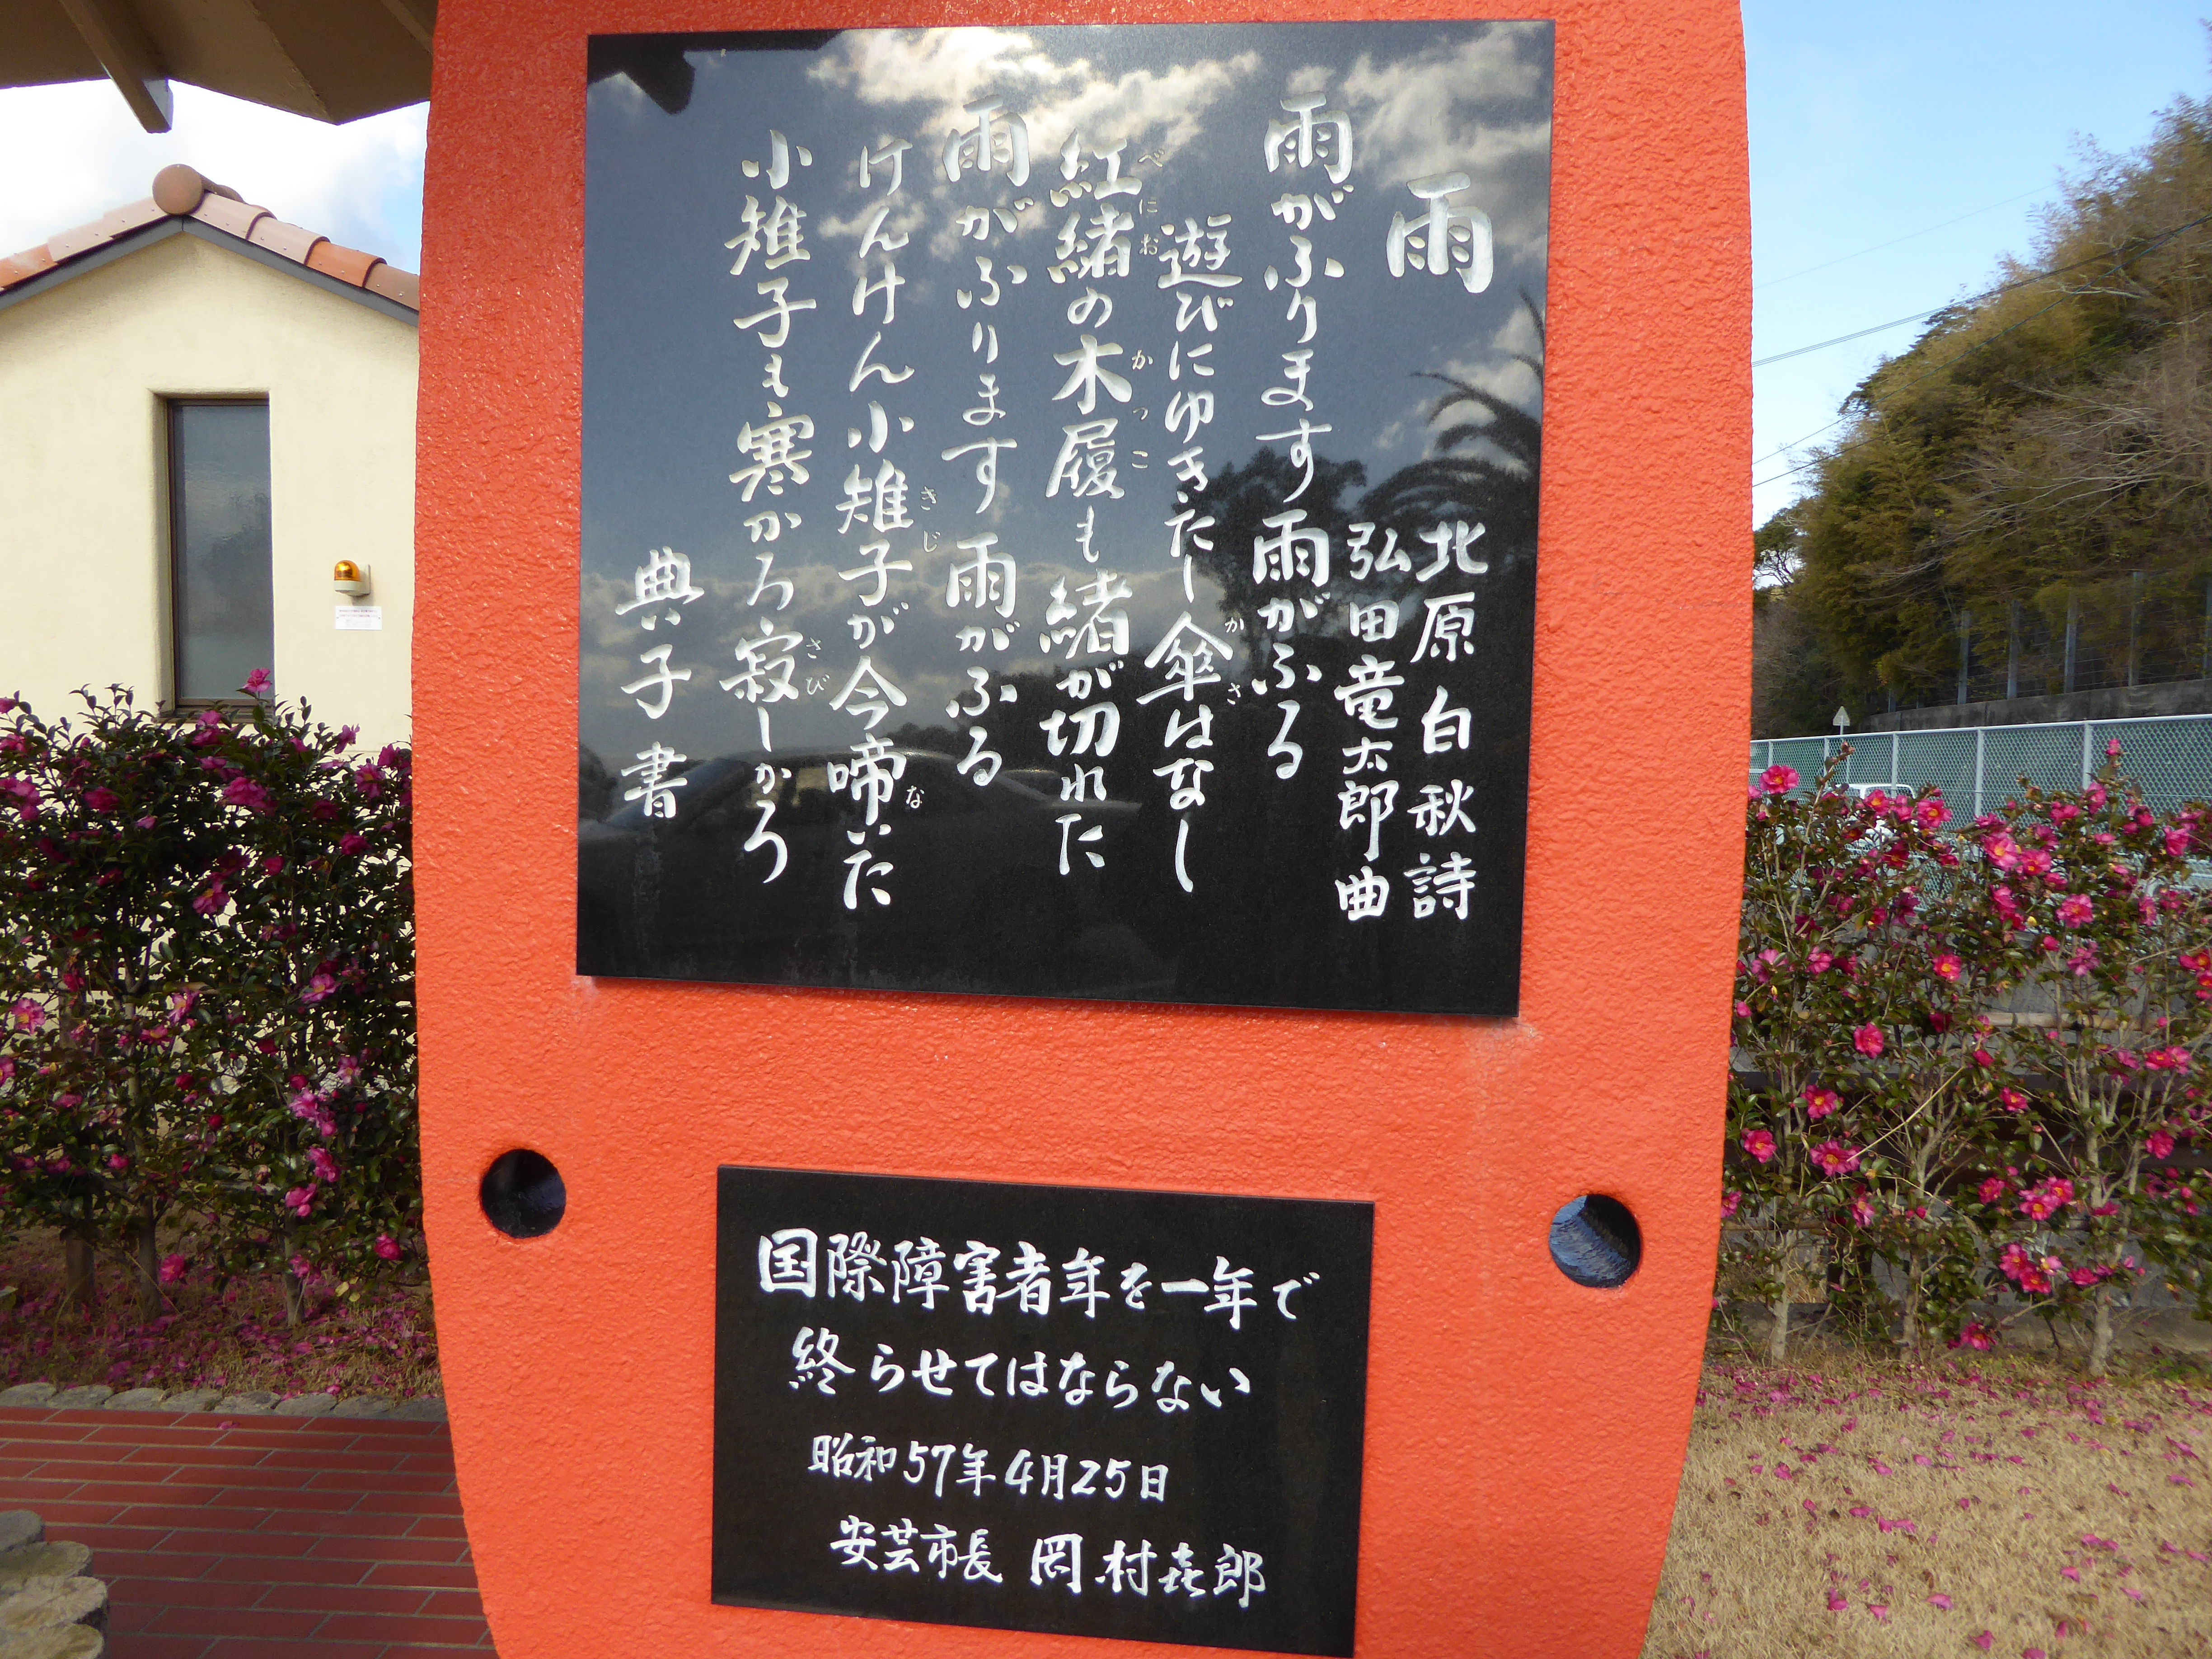 雨
北原白秋詩
弘田竜太郎曲
雨がふります雨がふる
遊びにゆきたし傘はなし
紅緒の木履も緒が切れた
雨がふります雨がふる
けんけん小雉子が今啼いた
小雉子も寒かろ寂しかろ
典子書
国際障害者年を一年で
終らせてはならない
昭和57年4月25日
安芸市長 岡村㐂郎